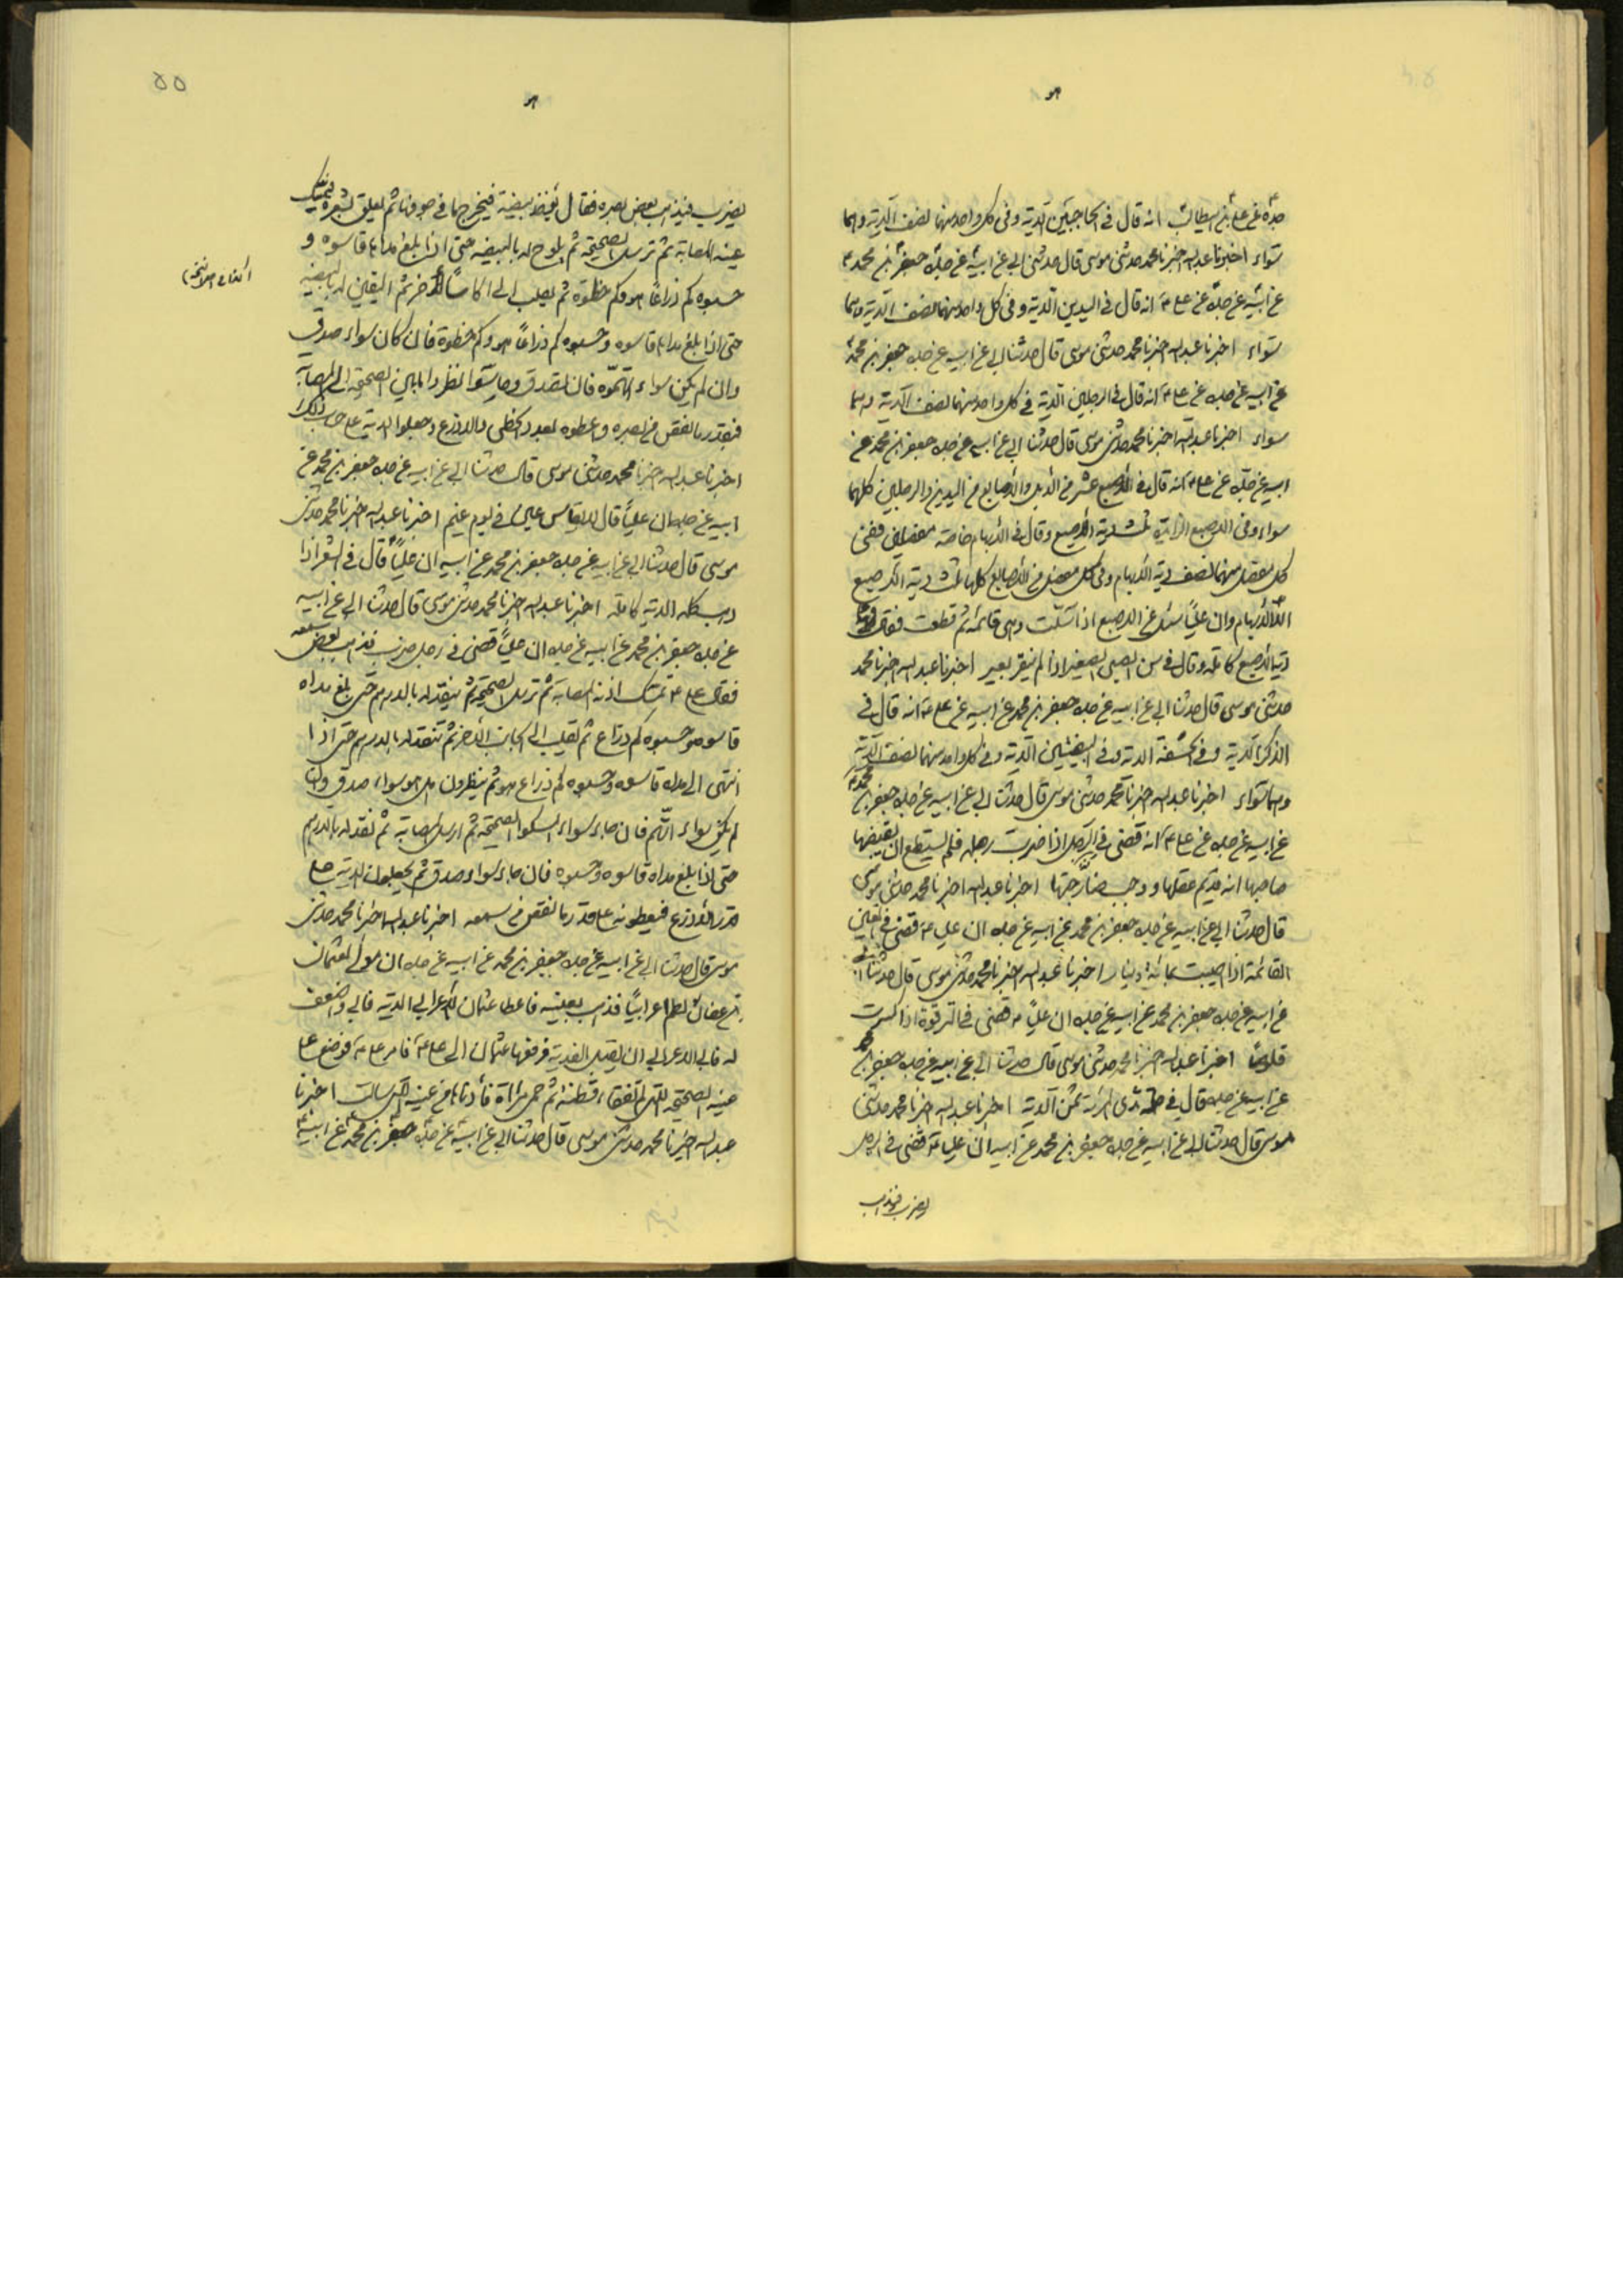 جده عن علي بن ابيطالب انه قال في الحاجبين الدية وفي كل واحد منهما نصف الدية وهما
سواء اخبرنا عبدالله اخبرنا محمد حدثني موسى قال حدثني ابي عن ابيه عن جده جعفر بن محمد
عن ابيه عن جده عن علي انه قال في اليدين الدية وفي كل واحد منهما نصف الدية وهما
سواء اخبرنا عبدالله اخبرنا محمد حدثني موسى قال حدثنا ابي عن ابيه عن جده جعفر بن محمد
عن ابيه عن جده عن علي انه قال في الرجلين الدية في كل واحد منهما نصف الدية وهما
سواء اخبرنا عبدالله اخبرنا محمد حدثني موسى قال حدثنا ابي عن ابيه عن جده جعفر بن محمد عن
ابيه عن جده عن علي انه قال في الاصبع عشر من الابل والاصابع من اليدين والرجلين كلها
سواء وفي الاصبع الزايدة ثلث دية الاصبع وقال في الابهام خاصة مفصلين ففي
كل مفصل منهما نصف دية الابهام وفي كل مفصل من الاصابع كلها ثلث دية الاصبع
الا الابهام وان عليا سئل عن الاصبع اذا شلت وهي قائمة ثم قطعت فقال
دية الاصبع كاملة وقال في سن الصبي الصغير اذا لم يثغر بعير اخبرنا عبدالله اخبرنا محمد
حدثني موسى قال حدثنا ابي عن ابيه عن جده جعفر بن محمد عن ابيه عن علي انه قال في
الذكر الدية وفي الحشفة الدية وفي البيضتين الدية وفي كل واحد منهما نصف الدية
وهما سواء اخبرنا عبدالله اخبرنا محمد حدثني موسى قال حدثنا ابي عن ابيه عن جده جعفر بن محمد
عن ابيه عن جده عن علي انه قضى في الرجل اذا ضربت رجله فلم يستطع ان يقبضها
صاحبها انه قد تم عقلها ووجب اخبرنا عبدالله اخبرنا محمد حدثني موسى
قال حدثنا ابي عن ابيه عن جده جعفر بن محمد عن ابيه عن جده ان علي قضى في العين
القائمة اذا اصيبت بمائة دينار اخبرنا عبدالله اخبرنا محمد حدثني موسى قال حدثنا ابي
عن ابيه عن جده جعفر بن محمد عن ابيه عن جده ان عليا قضى في الترقوة اذا كسرت
اخبرنا عبدالله اخبرنا محمد حدثني موسى قال حدثنا ابي عن ابيه عن جده جعفر بن محمد
عن ابيه عن جده قال في حلمة ثدي المراة ثمن الدية اخبرنا عبدالله اخبرنا محمد حدثني
موسى قال حدثنا ابي عن ابيه عن جده جعفر بن محمد عن ابيه ان عليا قضى في الرجل
يضرب فيذهب
٥٥
يضرب فيذهب بعض بصره فقال بيضة فيخرج ما في جوفها ثم يعلق بشعرة فيمسك
عينه المصابة ثم ترسل الصحيحة ثم يلوح له بالبيضة حتى اذا بلغ مداه قاسوه و
حسبوه كم ذراعا هو وكم خطوة ثم الى ثم بالبيضة
حتى اذا بلغ مداه قاسوه وحسبوه كم ذراعا هو وكم خطوة فان كان سواء صدق
وان لم يكن سواء اتهموه فان صدق نظر وا ما بين الصحيحة الى المصابة
فبقدر ما نقص من بصره وعطوه بعدد الخطى والاذرع وجعلوا الدية على حساب ذلك
اخبرنا عبدالله اخبرنا محمد حدثني موسى قال حدثنا ابي عن ابيه عن جده جعفر بن محمد عن
ابيه عن جده ان عليا قال لا يقاس عين في يوم غيم اخبرنا عبدالله اخبرنا محمد حدثني
موسى قال حدثنا ابي عن ابيه عن جده جعفر بن محمد عن ابيه ان عليا قال في الشعر اذا
ذهب كله الدية كاملة اخبرنا عبدالله اخبرنا محمد حدثني موسى قال حدثنا ابي عن ابيه
عن جده جعفر بن محمد عن ابيه عن جده ان عليا قضى في رجل ضرب فذهب بعض سمعه
فقال علي تمسك اذنه المصابة ثم ترسل الصحيحة ثم ينقد له بالدرهم حتى بلغ مداه
قاسوه وحسبوه كم ذراع ثم تقلب الى الجانب الاخر ثم تنقد له بالدرهم حتى اذا
انتهى الى مداه قاسوه وحسبوه كم ذراع هو ثم ينظرون هل هو سواء صدق وان
لم يكن سواء اتهم فان جاء سواء امسكوا الصحيحة ثم ارسل المصابة ثم نقد له بالدرهم
حتى اذا بلغ مداه قاسوه وحسبوه فان جاء سواء صدق ثم يجعلون الدية على
قدر الاذرع فيعطونه على قدر ما نقص من سمعه اخبرنا عبدالله اخبرنا محمد حدثني
موسى قال حدثنا ابي عن ابيه عن جده جعفر بن محمد عن ابيه عن جده ان مولى لعثمان
بن عفان لطم اعرابيا فذهب بعينه فاعطا عثمان الاعرابي الدية فابى واضعف
له فابى الاعرابي ان يقبل الفدية فرفعها عثمان الى علي فامر علي فوضع على
عينه الصحيحة قطنة ثم حمى مرآة فادناها من عينه حتى سالت اخبرنا
عبدالله اخبرنا محمد حدثني موسى قال حدثنا ابي عن ابيه عن جده جعفر بن محمد عن ابيه